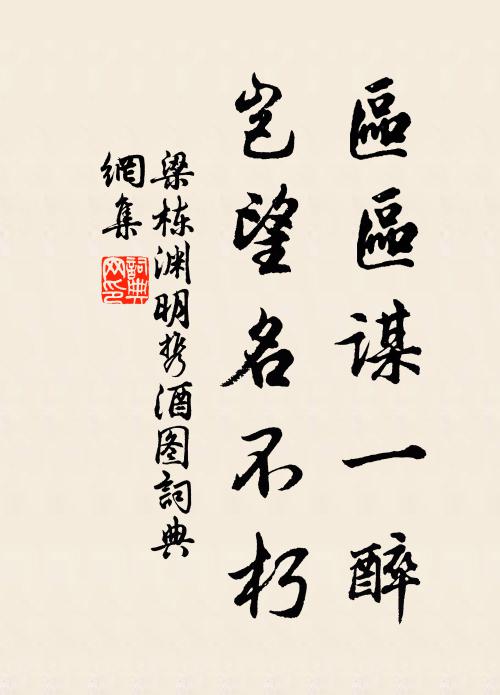 區區謀一醉
岂望名不朽
梁栋渊明携酒图詞典
網集
詞典網印